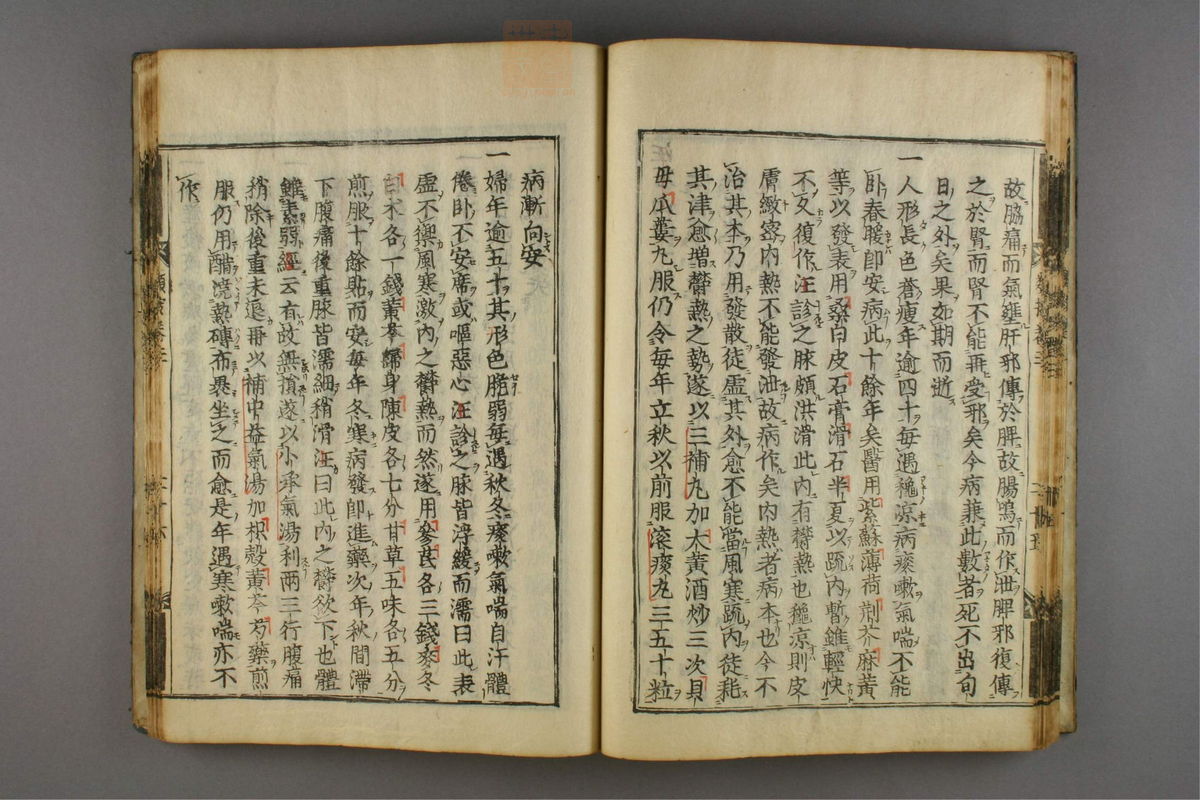 故脇痛而氣壅肝邪傳於脾故腸鳴而作泄脾邪復傳
之於腎而腎不能再受邪矣今病兼此數者死不出旬
日之外矣果如期而逝
一人形長色蒼瘦年逾四十每遇穐凉病痰嗽氣喘不能
卧春暖即安病此十餘年矣醫用紫蘇薄荷荊芥麻黄
等以發表用桑白皮石膏滑石半夏以疏內暫雖輕快
不久復作汪診之脉頗洪滑此內有欝熱也穐凉則皮
膚緻宻內熱不能發泄故病作矣內熱者病本也今不
治其本乃用發散徒虛其外愈不能當風寒疏內徒耗
其津愈增欝熱之勢遂以三補丸加大黄酒炒三次貝
母瓜蔞丸服仍令每年立秋以前服滚痰丸三五十粒
病漸向安
一婦年逾五十其形色脆弱每遇秋冬痰嗽氣喘自汗體
倦卧不安席或嘔惡心汪診之脉皆浮緩而濡曰此表
虛不禦風寒激內之欝熱而然遂用參芪各三錢麥冬
白朮各一錢黄芩歸身陳皮各七分甘草五味各五分
煎服十餘貼而安每年冬寒病發即進藥次年秋間滯
下腹痛後重脉皆濡細稍滑汪曰此內之欝欲下也體
雖素弱經云有故無損遂以小承氣湯利兩三行腹痛
稍除後重未退再以補中益氣湯加枳殻黄芩芍藥煎
服仍用醋澆熱磚布裹坐之而愈是年遇寒嗽喘亦不
作